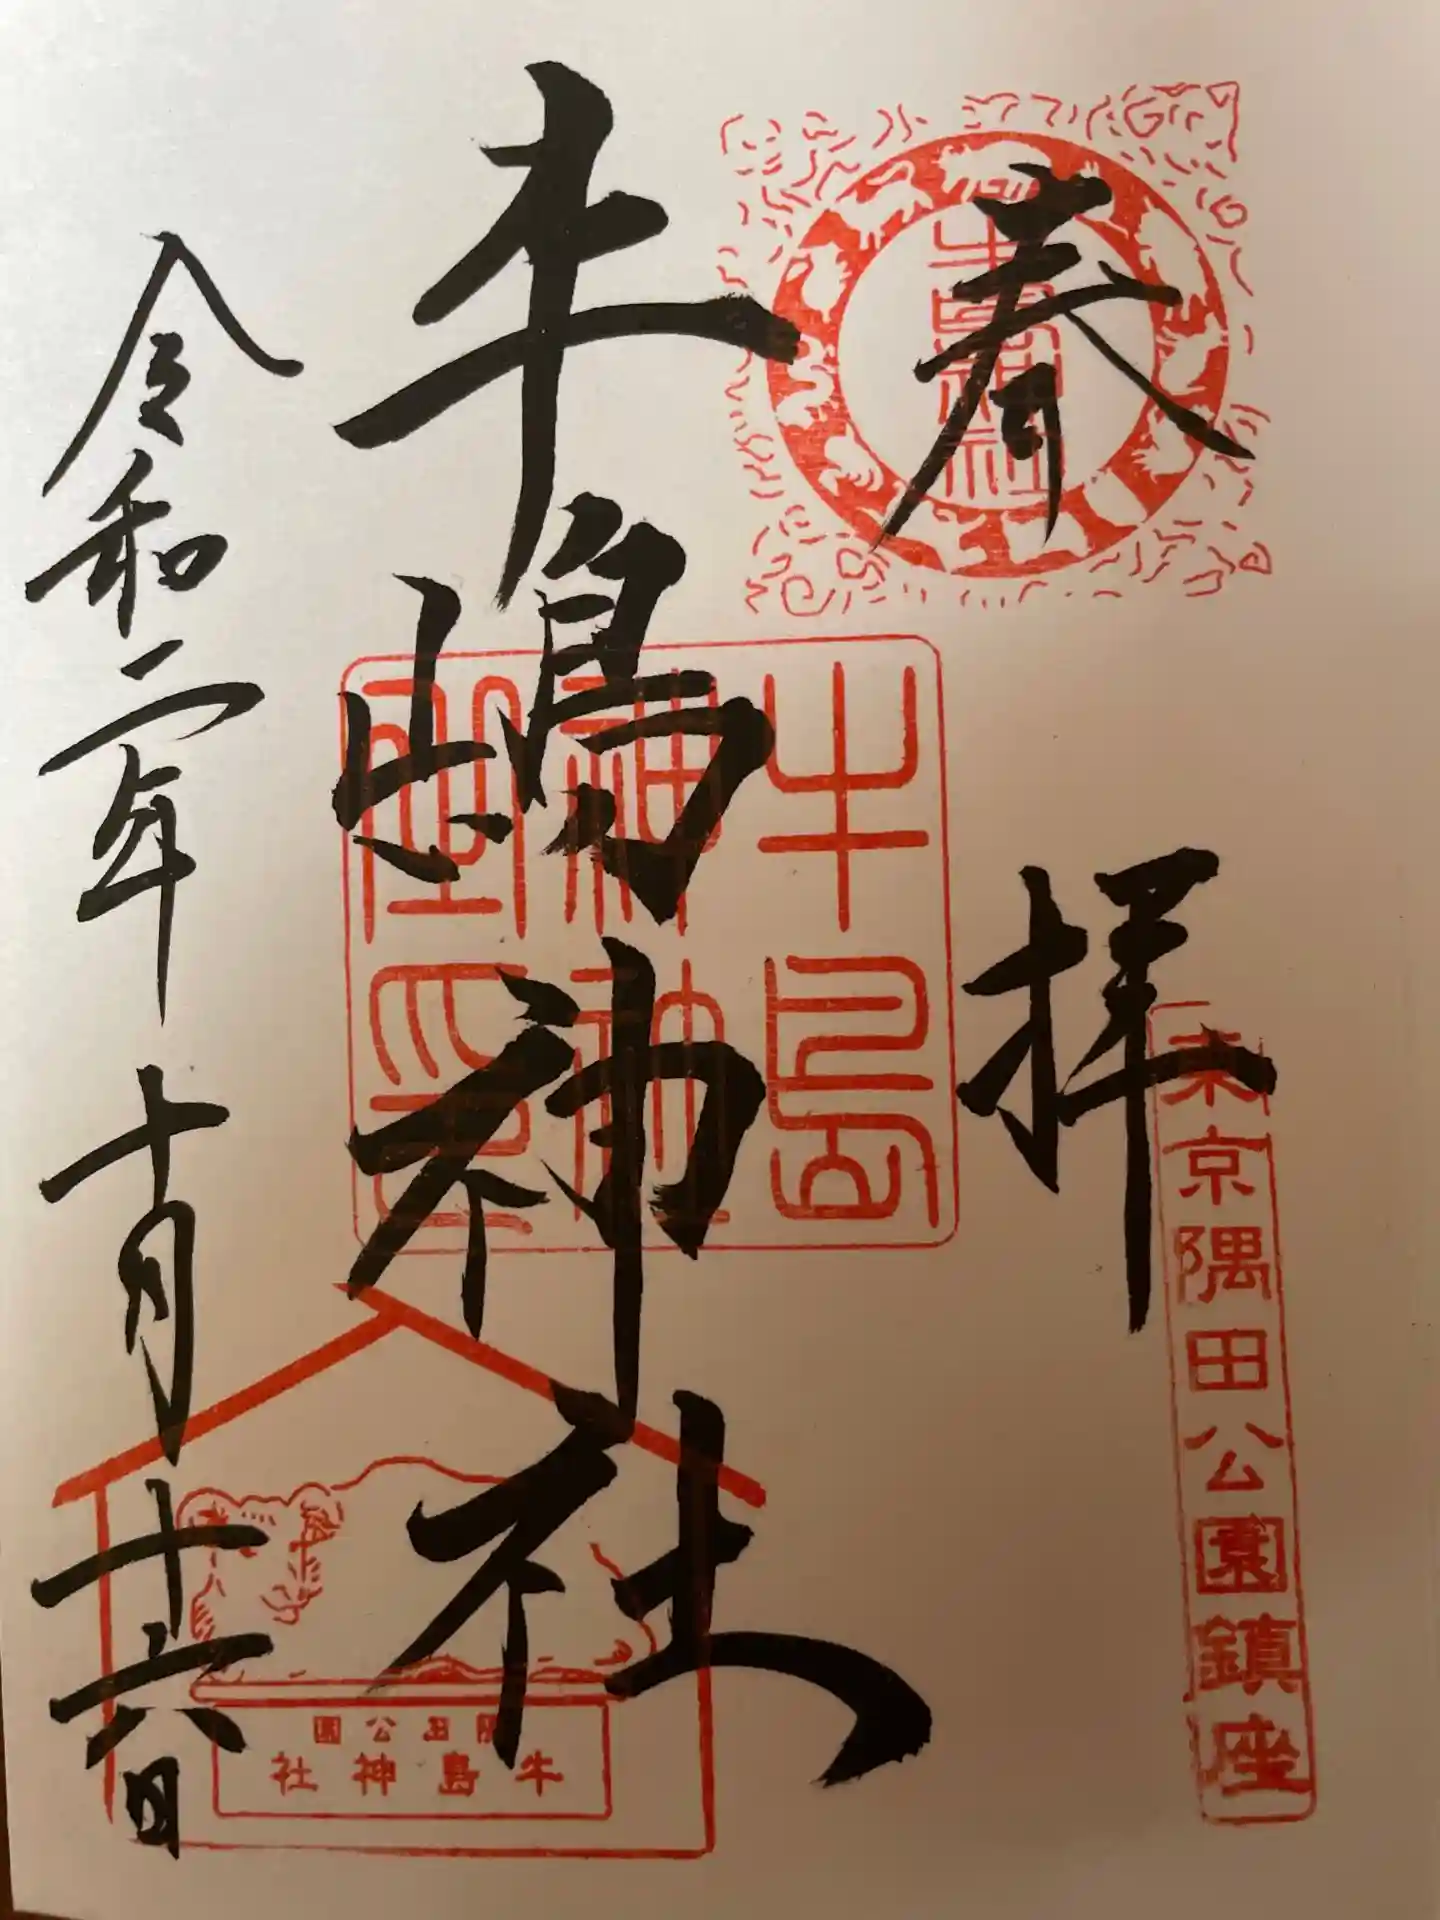 奉拝
東京隅田公園鎮座
牛島神社
牛島
神社
牛嶋神社
隅田公園
牛島神社
令和二年十月十六日